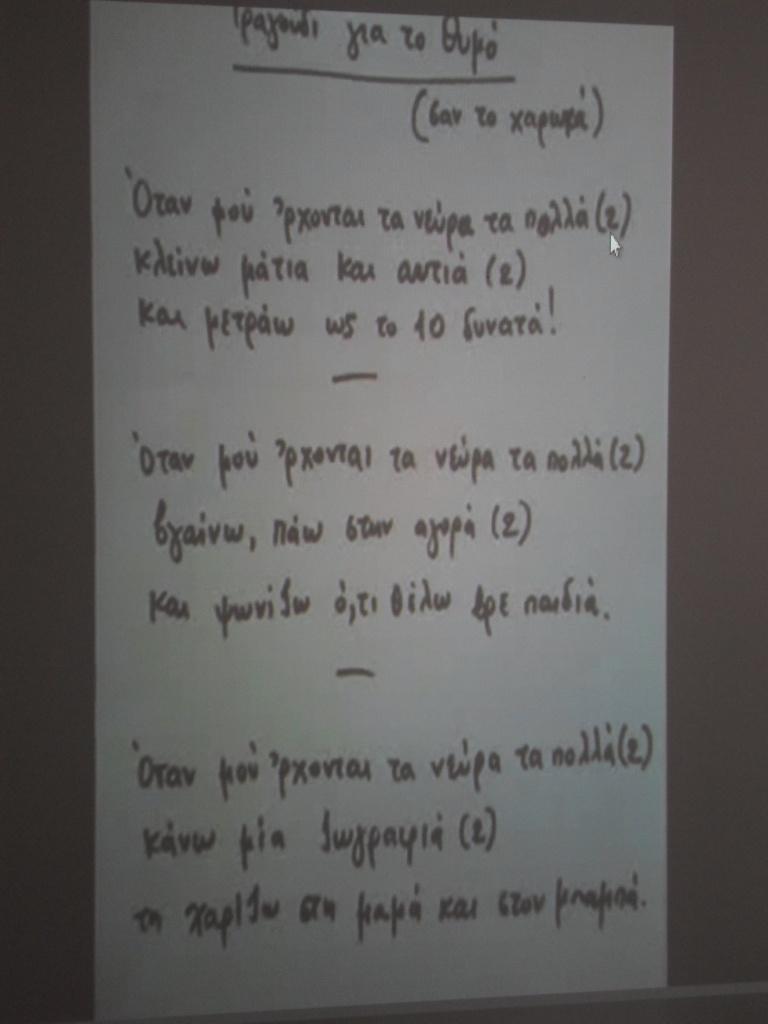 Τραγούδι για το θυμό
(σαν το χαρωπά)
Όταν μού 'ρχονται τα νεύρα τα πολλά (2)
κλείνω μάτια και αυτιά (2)
και μετράω ως το 10 δυνατά!
—
Όταν μού 'ρχονται τα νεύρα τα πολλά (2)
βγαίνω, πάω στην αγορά (2)
και ψωνίζω ό,τι θέλω βρε παιδιά.
—
Όταν μού 'ρχονται τα νεύρα τα πολλά (2)
κάνω μία ζωγραφιά (2)
τη χαρίζω στη μαμά και στον μπαμπά.